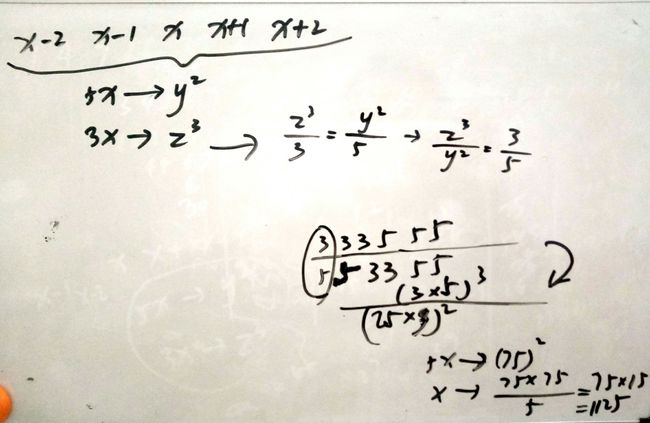 x-2 x-1 x x+1 x+2
5x → y²
3x → z³ → z³/3 = y²/5 → z³/y² = 3/5
3 3 3 5 5 5
5 5 3 3 5 5
(3×5)³
(25×3)²
5x → (75)²
x → 75×75/5 = 75×15
=1125